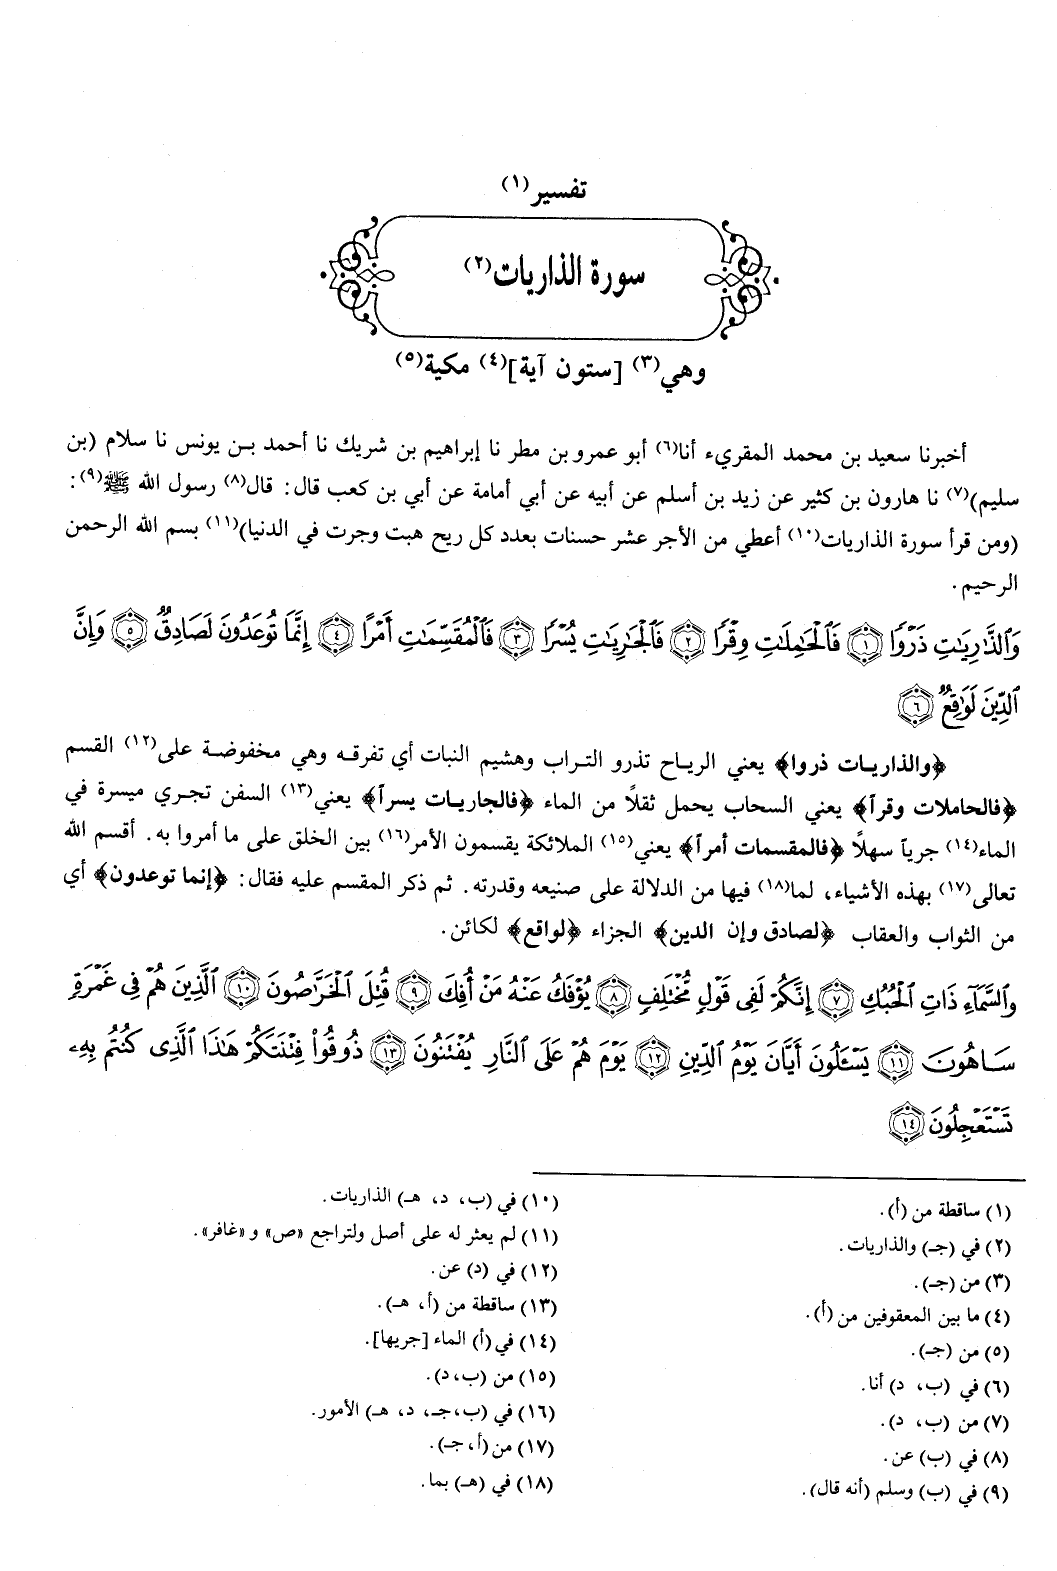 تفسير(١)
سورة الذاريات(٢)
وهي(٣) [ستون آية](٤) مكية(٥)
أخبرنا سعيد بن محمد المقريء أنا(٦) أبو عمرو بن مطر نا إبراهيم بن شريك نا أحمد بن يونس نا سلام (بن
سليم)(٧) نا هارون بن كثير عن زيد بن أسلم عن أبيه عن أبي أمامة عن أبي بن كعب قال: قال(٨) رسول الله ﷺ(٩):
(ومن قرأ سورة الذاريات(١٠) أعطي من الأجر عشر حسنات بعدد كل ريح هبت وجرت في الدنيا)(١١) بسم الله الرحمن
الرحيم.
وَٱلذَّٰرِيَٰتِ ذَرْوًا ١ فَٱلْحَٰمِلَٰتِ وِقْرًا ٢ فَٱلْجَٰرِيَٰتِ يُسْرًا ٣ فَٱلْمُقَسِّمَٰتِ أَمْرًا ٤ إِنَّمَا تُوعَدُونَ لَصَادِقٌ ٥ وَإِنَّ
ٱلدِّينَ لَوَٰقِعٌ ٦
﴿والذاريات ذروا﴾ يعني الرياح تذرو التراب وهشيم النبات أي تفرقه وهي مخفوضة على(١٢) القسم
﴿فالحاملات وقرآ﴾ يعني السحاب يحمل ثقلاً من الماء ﴿فالجاريات يسرآ﴾ يعني(١٣) السفن تجري ميسرة في
الماء(١٤) جرياً سهلاً ﴿فالمقسمات أمرآ﴾ يعني(١٥) الملائكة يقسمون الأمر(١٦) بين الخلق على ما أمروا به. أقسم الله
تعالى(١٧) بهذه الأشياء، لما(١٨) فيها من الدلالة على صنيعه وقدرته. ثم ذكر المقسم عليه فقال: ﴿إنما توعدون﴾ أي
من الثواب والعقاب ﴿لصادق وإن الدين﴾ الجزاء ﴿لواقع﴾ لكائن.
وَٱلسَّمَآءِ ذَاتِ ٱلْحُبُكِ ٧ إِنَّكُمْ لَفِى قَوْلٍ مُّخْتَلِفٍ ٨ يُؤْفَكُ عَنْهُ مَنْ أُفِكَ ٩ قُتِلَ ٱلْخَرَّٰصُونَ ١٠ ٱلَّذِينَ هُمْ فِى غَمْرَةٍ
سَاهُونَ ١١ يَسْـَٔلُونَ أَيَّانَ يَوْمُ ٱلدِّينِ ١٢ يَوْمَ هُمْ عَلَى ٱلنَّارِ يُفْتَنُونَ ١٣ ذُوقُوا۟ فِتْنَتَكُمْ هَٰذَا ٱلَّذِى كُنتُم بِهِۦ
تَسْتَعْجِلُونَ ١٤
(١) ساقطة من (أ).
(٢) في (جـ) والذاريات.
(٣) من (جـ).
(٤) ما بين المعقوفين من (أ).
(٥) من (جـ).
(٦) في (ب، د) أنا.
(٧) من (ب، د).
(٨) في (ب) عن.
(٩) في (ب) وسلم (أنه قال).
(١٠) في (ب، د، هـ) الذاريات.
(١١) لم يعثر له على أصل ولتراجع «ص» و«غافر».
(١٢) في (د) عن.
(١٣) ساقطة من (أ، هـ).
(١٤) في (أ) الماء [جريها].
(١٥) من (ب،د).
(١٦) في (ب،جـ، د، هـ) الأمور.
(١٧) من (أ،جـ).
(١٨) في (هـ) بما.